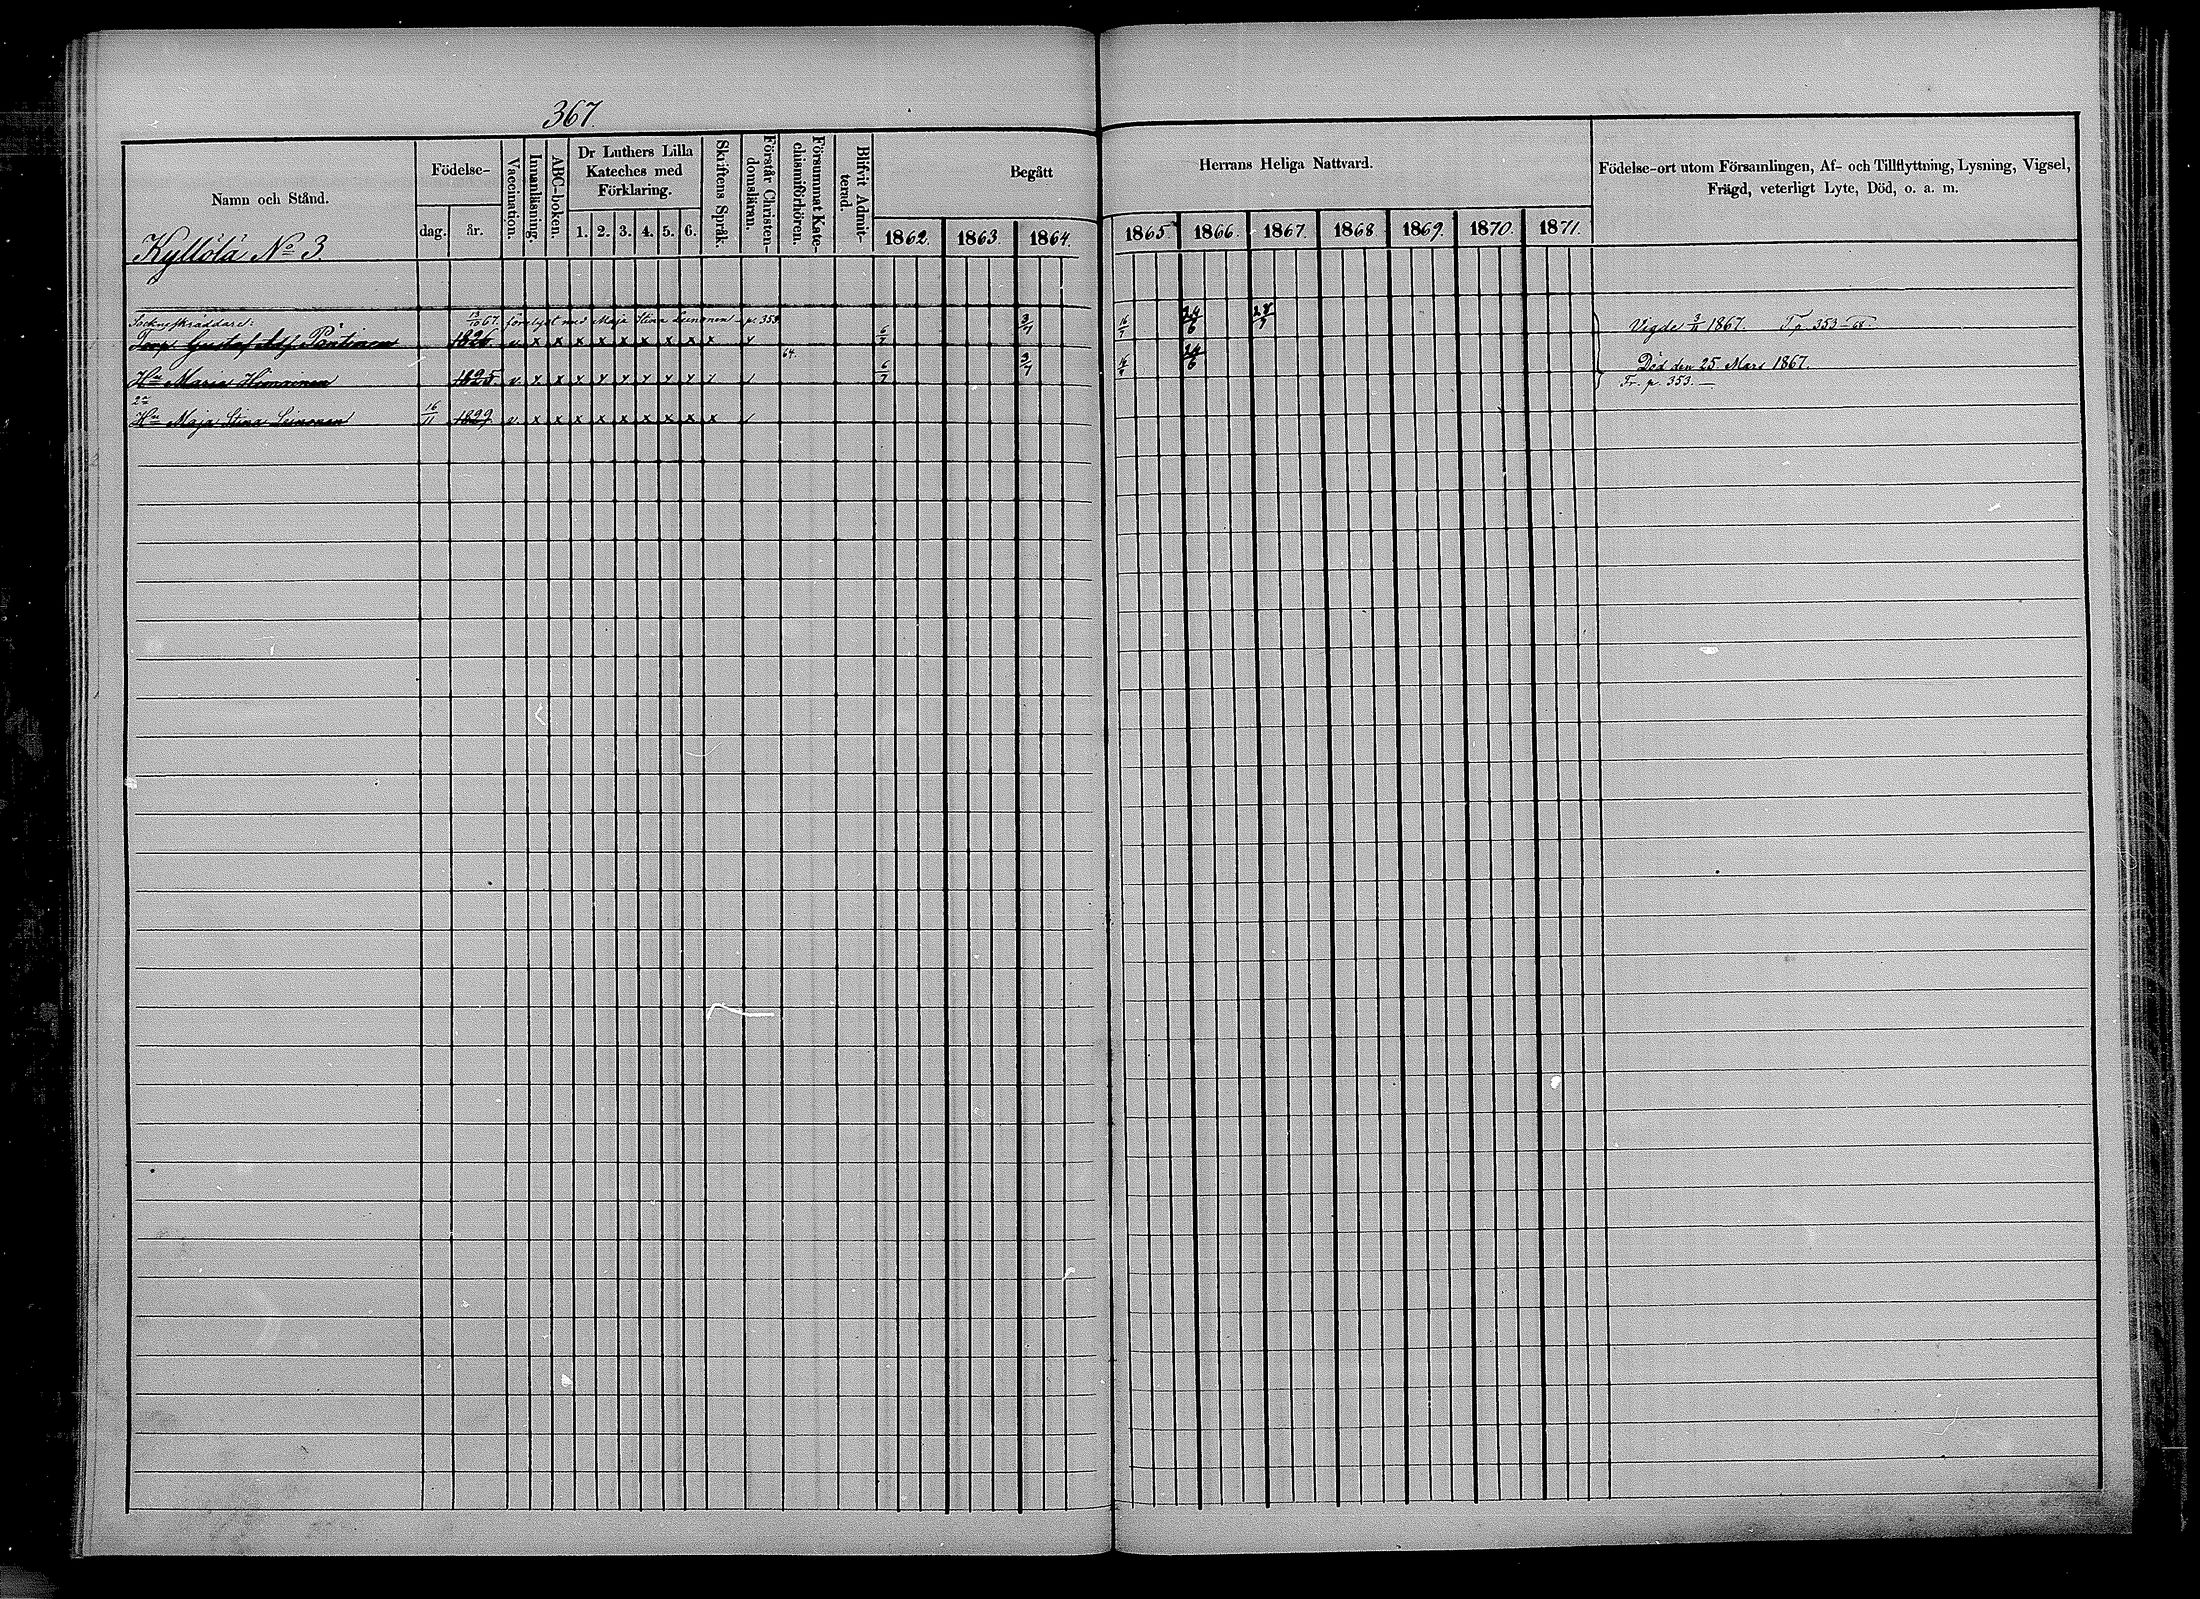 367.
Namn och Stånd.
Födelse-
dag.
år.
Vaccination.
Innanläsning.
ABC-boken.
Dr Luthers Lilla
Kateches med
Förklaring.
1. 2. 3. 4. 5. 6.
Skriftens Språk.
Förstår Christen-
domsläran.
Försummat Kate-
chismiförhören.
Blifvit Admit-
terad.
Begått
Herrans Heliga Nattvard.
1862. 1863. 1864. 1865. 1866. 1867. 1868. 1869. 1870. 1871.
Födelse-ort utom Församlingen, Af- och Tillflyttning, Lysning, Vigsel,
Frägd, veterligt Lyte, Död, o. a. m.
Kyllölä No 3.
Sockneskräddare. 13/10 67. förelyst med Maja Stina Leinonen - p. 353
Torp Gustaf Adf. Päntinen 1826. v x x x x x x x x x 6/7 3/7 16/7 24/6 Vigde 3/11 1867. Tr p. 353
Hu Maria 1825. v 64. 6/7 3/7 24/6 Död den 25 Mars 1867.
Fr. p. 353. —
2a
Hu Maja Stina Leinonen 16/11 v x x x x x x x x x